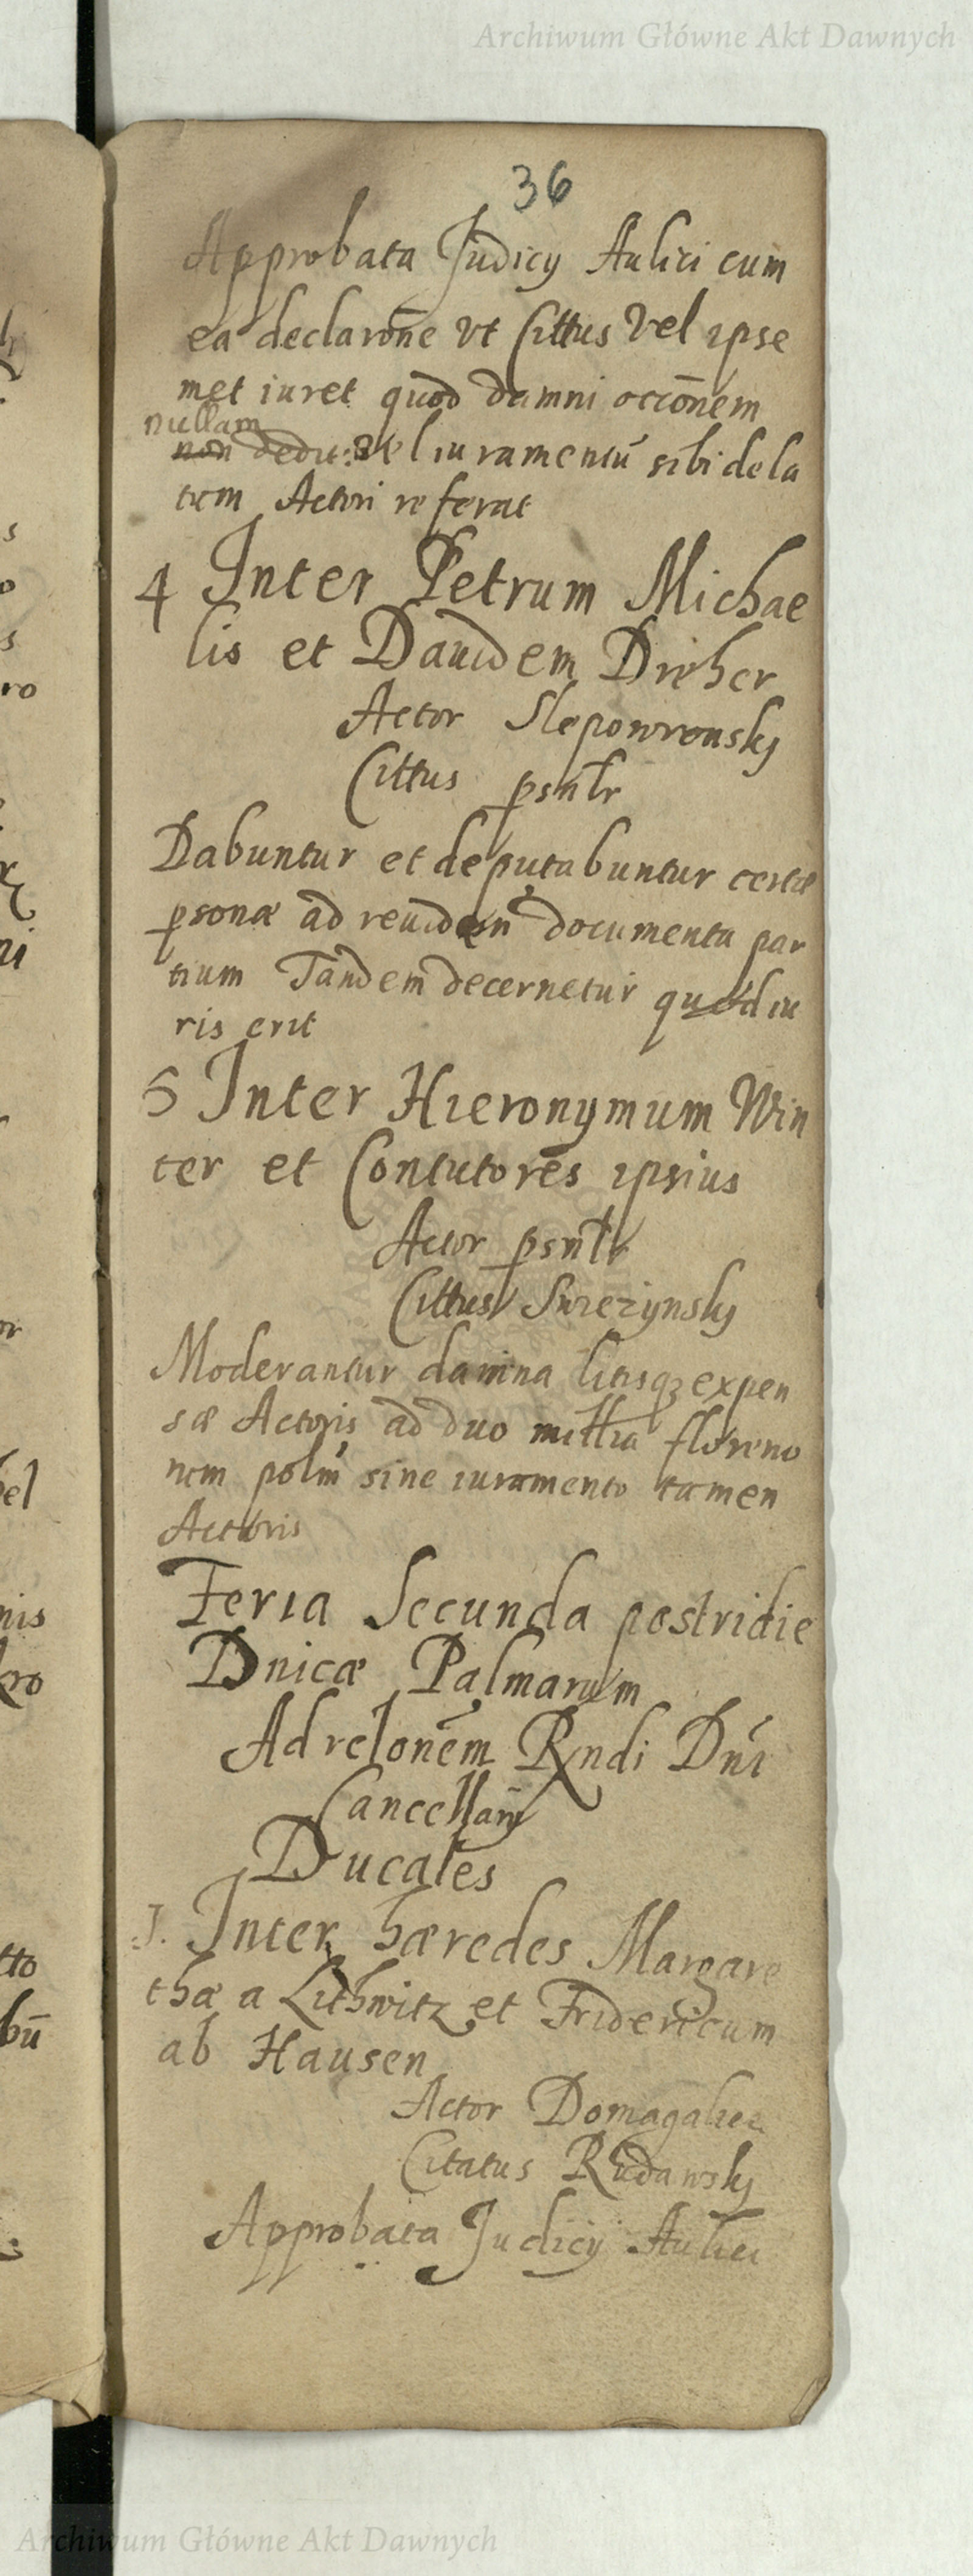 Archiwum Główne Akt Dawnych
36
Approbata Judicy Aulici cum
ea declarōne vt Cittus vel ipse
met iuret quod damni occōnem
nullam
non dedit: vel iuramentū sibi dela
tum Actori referat
4 Inter Petrum Michae
lis et Dauidem Dreher
Actor Slepowronsky
Cittus psntr
Dabuntur et deputabuntur certæ
psonæ ad reuidēn documenta par
tium Tandem decernetur quod iu
ris erit
5 Inter Hieronymum Win
ter et Contutores ipsius
Actor psntr
Cittus Swiezynsky
Moderantur damna litisq expen
sæ Actoris ad duo millia floreno
rum polm sine iuramento tamen
Actoris
Feria Secunda postridie
Dnicæ Palmarum
Ad relonēm Rndi Dni
Cancellarij
Ducales
1. Inter hæredes Margare
thæ a Lithwitz et Fridericum
ab Hausen
Actor Domagalicz
Citatus Rudawsky
Approbata Judicij Aulici
Archiwum Główne Akt Dawnych